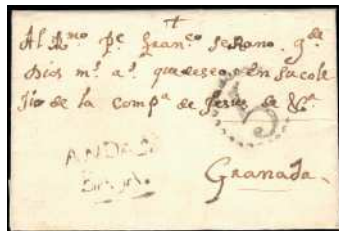 +
Al Rmo Pe Franco Serano gde
Dios ms as que deseo en su cole
Jio de la compa de Jesus de &a
5
ANDALU
Granada